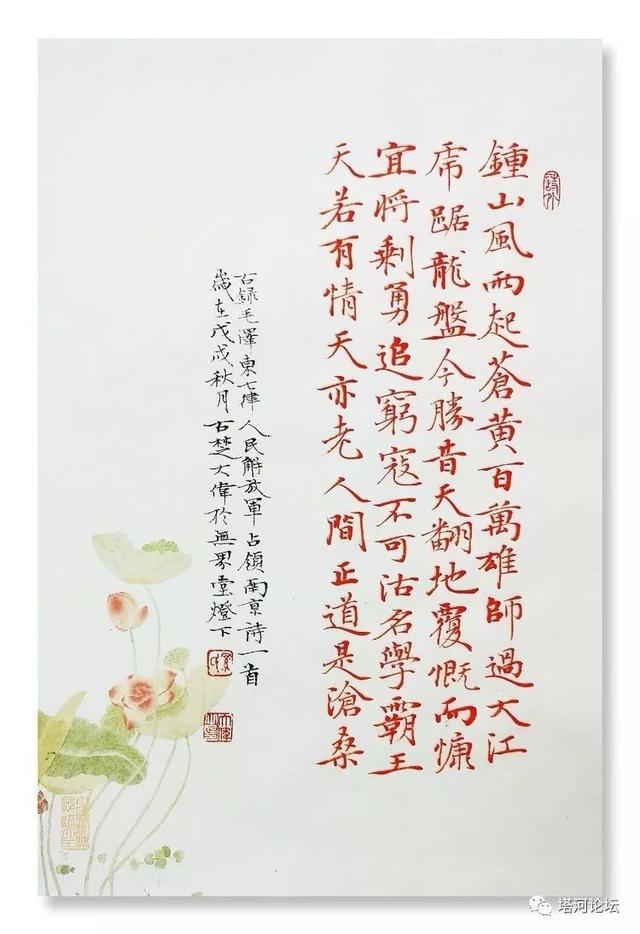 鍾山風雨起蒼黃百萬雄師過大江
虎踞龍盤今勝昔天翻地覆慨而慷
宜將剩勇追窮寇不可沽名學霸王
天若有情天亦老人間正道是滄桑
右錄毛澤東七律人民解放軍占領南京詩一首
歲在戊戌秋月古楚大偉於無界堂燈下
塔河论坛